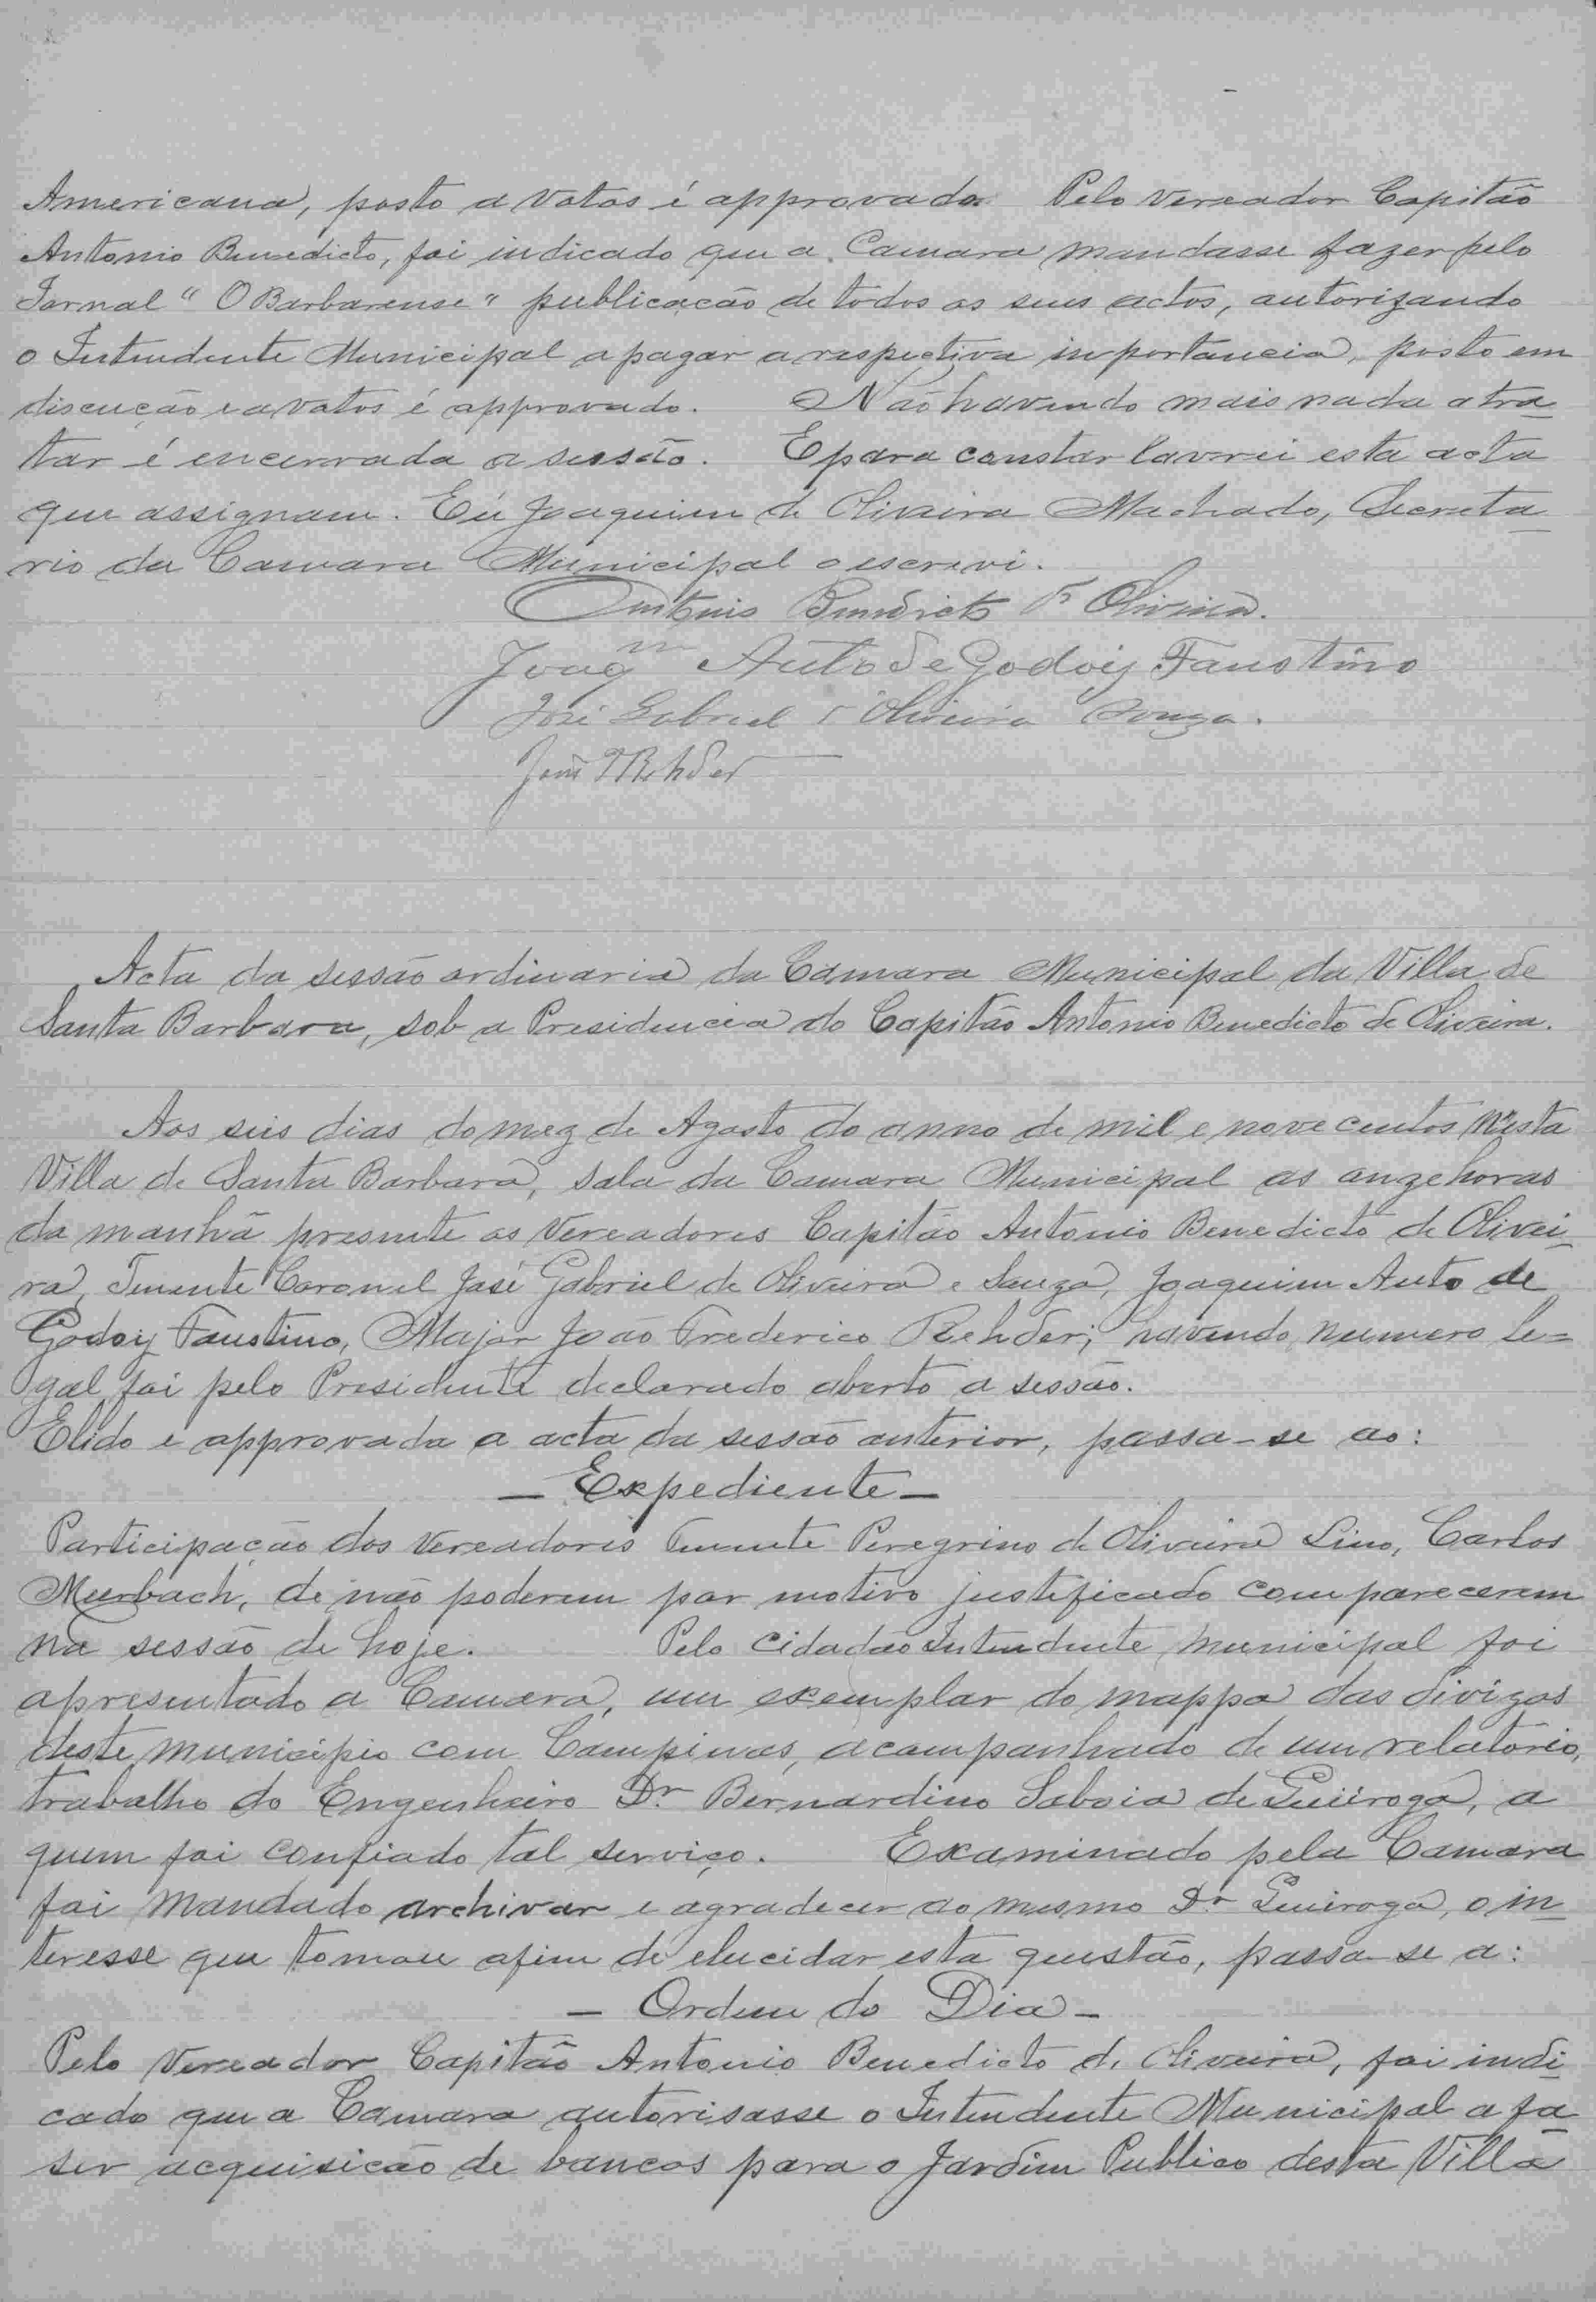 Americana, posto a votos é approvada. Pelo Vereador Capitão
Antonio Benedicto, foi indicado que a Camara mandasse fazer pelo
Jornal "O Barbarense" publicação de todos os seus actos, autorizando
o Intendente Municipal a pagar a respectiva importancia, posto em
discução e a votos é approvado. Não havendo mais nada a tra
tar é encerrada a sessão. E para constar lavrei esta acta
que assignam. Eu Joaquim de Oliveira Machado, Secreta
rio da Camara Municipal o escrevi.
Antonio Benedicto de Oliveira.
Joaqm Auto de Godoy Faustino
José Gabriel d'Oliveira Souza.
João F Rehder
Acta da sessão ordinaria da Camara Municipal da Villa de
Santa Barbara, sob a Presidencia do Capitão Antonio Benedicto de Oliveira.
Aos seis dias do mez de Agosto do anno de mil e nove centos nesta
Villa de Santa Barbara, sala da Camara Municipal as onze horas
da manhã presente os Vereadores Capitão Antonio Benedicto de Olivei-
ra, Tenente Coronel José Gabriel de Oliveira e Souza, Joaquim Auto de
Godoy Faustino, Major João Frederico Rehder; havendo numero le=
gal foi pelo Presidente declarado aberto a sessão.
E lido e approvada a acta da sessão anterior, passa-se ao:
- Expediente -
Participação dos Vereadores Tenente Peregrino de Oliveira Lino, Carlos
Murbach, de não poderem por motivo justificado comparecerem
na sessão de hoje. Pelo Cidadão Intendente municipal foi
apresentado a Camara, um exemplar do mappa das divizas
deste municipio com Campinas, acompanhado de um relatório,
trabalho do Engenheiro Dr. Bernardino Saboia de Quiroga, a
quem foi confiado tal serviço. Examinado pela Camara
foi mandado archivar e agradecer ao mesmo Dr. Quiroga, o in
teresse que tomou afim de elucidar esta questão, passa-se a:
- Ordem do Dia -
Pelo Vereador Capitão Antonio Benedicto de Oliveira, foi indi
cado que a Camara autorisasse o Intendente Municipal a fa
ser acquisicão de bancos para o Jardim Publico desta Villa